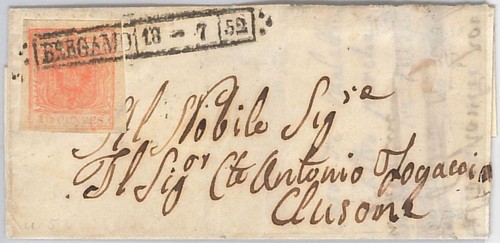 BERGAMO 18 - 7 52
15 CENTES
Al Nobile Sig.re
Il Sig.or Cte Antonio Fogaccia
Clusone